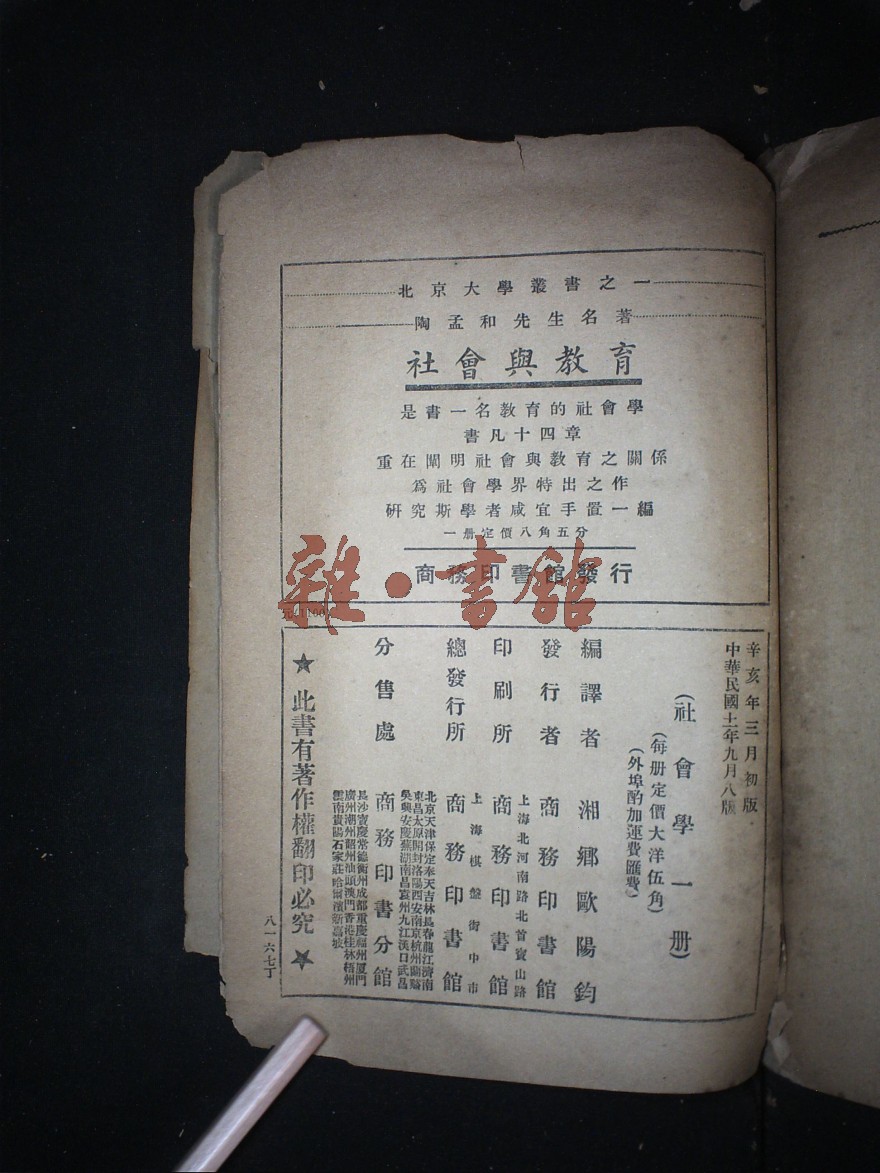 北京大學叢書之一
陶孟和先生名著
社會與教育
是書一名教育的社會學
書凡十四章
重在闡明社會與教育之關係
爲社會學界特出之作
研究斯學者咸宜手置一編
一册定價八角五分
商務印書館發行
雜·書館
辛亥年三月初版
中華民國十一年九月八版
(社會學一册)
(每册定價大洋伍角)
(外埠酌加運費匯費)
編譯者 湘鄉歐陽鈞
發行者 商務印書館
上海北河南路北首寶山路
印刷所 商務印書館
上海棋盤街中市
總發行所 商務印書館
分售處 商務印書分館
北京天津保定奉天吉林長春龍江濟南
東昌太原開封洛陽西安南京杭州蘭谿
吳興安慶蕪湖南昌袁州九江漢口武昌
長沙寶慶常德衡州成都重慶福州廈門
廣州潮州韶州汕頭澳門香港桂林梧州
雲南貴陽石家莊哈爾濱新嘉坡
★此書有著作權翻印必究★
八一六七丁